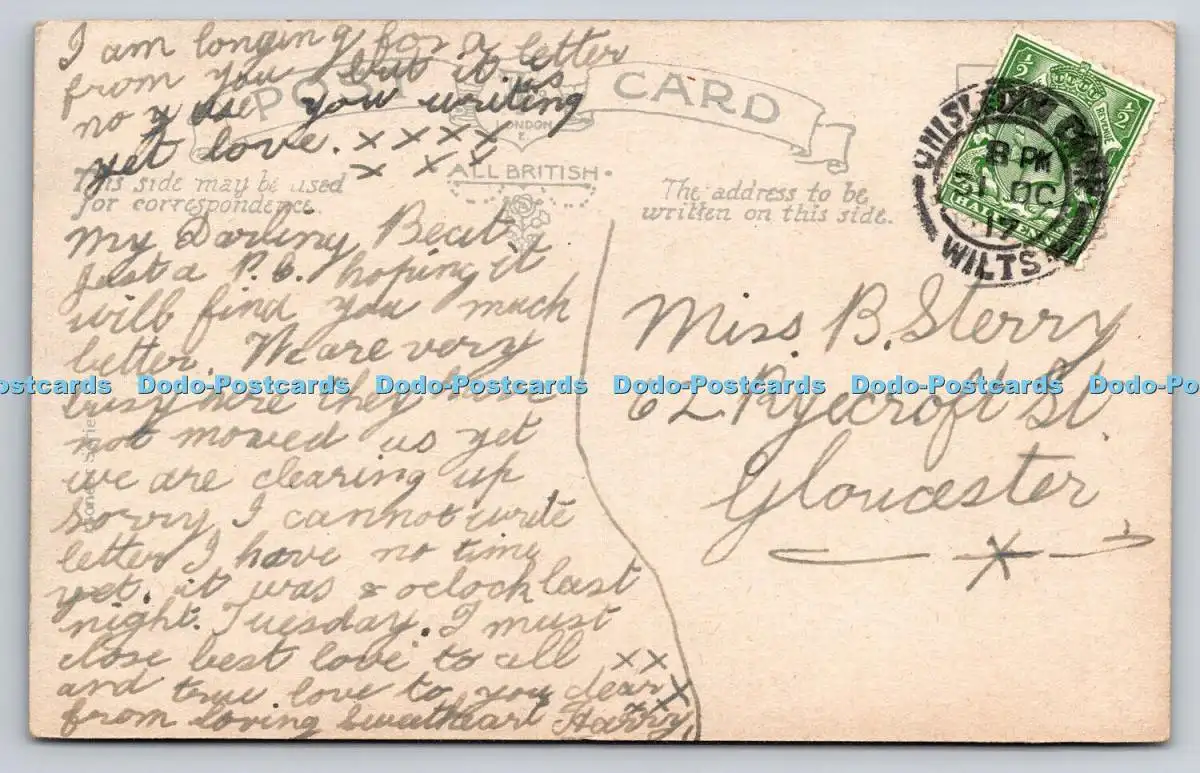 I am longing for a letter
from you but it is
no use you writing
yet love. x x x x
x x x
POST CARD
LONDON
E.
ALL BRITISH
This side may be used
for correspondence
The address to be
written on this side.
My Darling Beat,
Just a P.C. hoping it
will find you much
better. We are very
busy here they have
not moved us yet
we are clearing up
sorry I cannot write
letter I have no time
yet. it was 8 oclock last
night. Tuesday. I must
close best love to all xx
and true love to you dear x
from loving sweetheart Harry
Miss. B. Sterry
62 Ryecroft St.
Gloucester
x
½ ½
REVENUE
HALFPENNY
CHISLEDON CAMP
8 PM
31 DC
17
WILTS
Dodo-Postcards Dodo-Postcards Dodo-Postcards Dodo-Postcards Dodo-Postcards